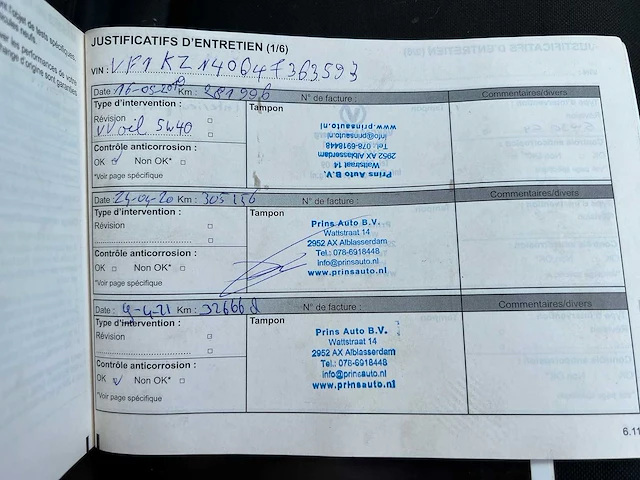 JUSTIFICATIFS D'ENTRETIEN (1/6)
VIN : VF1KZ14064F363593
Date : 16-05-2019 Km : 281996 N° de facture : Commentaires/divers
Type d'intervention :
Révision
VV oil 5W40
Contrôle anticorrosion :
OK Non OK*
*Voir page spécifique
Tampon
Prins Auto B.V.
Wattstraat 14
2952 AX Alblasserdam
Tel.: 078-6918448
info@prinsauto.nl
www.prinsauto.nl
Date : 24-04-20 Km : 305156 N° de facture : Commentaires/divers
Type d'intervention :
Révision
Contrôle anticorrosion :
OK Non OK*
*Voir page spécifique
Tampon
Prins Auto B.V.
Wattstraat 14
2952 AX Alblasserdam
Tel.: 078-6918448
info@prinsauto.nl
www.prinsauto.nl
Date : 9-4-21 Km : N° de facture : Commentaires/divers
Type d'intervention :
Révision
Contrôle anticorrosion :
OK Non OK*
*Voir page spécifique
Tampon
Prins Auto B.V.
Wattstraat 14
2952 AX Alblasserdam
Tel.: 078-6918448
info@prinsauto.nl
www.prinsauto.nl
6.11